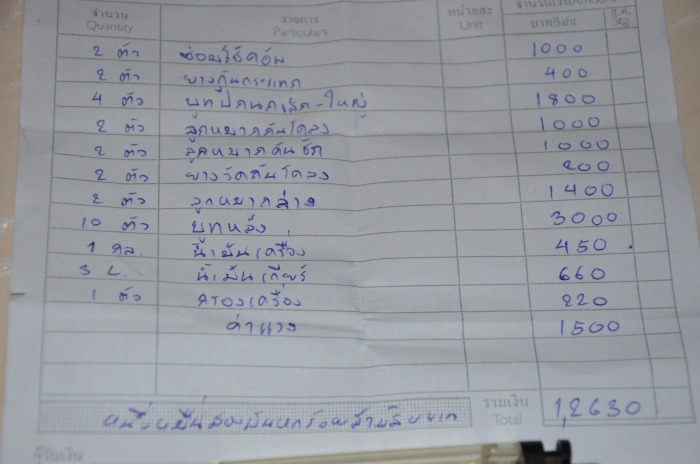 จำนวน รายการ หน่วยละ จำนวนเงิน
Quantity Particulars Unit บาทBaht
2 ตัว ซ่อมโช้คอัพ 1000
2 ตัว ยางกันกระแทก 400
4 ตัว บูทปีกนกเล็ก-ใหญ่ 1800
2 ตัว ลูกหมากคันโคลง 1000
2 ตัว ลูกหมากคันชัก 1000
2 ตัว ยางรัดกันโคลง 200
2 ตัว ลูกหมากล่าง 1400
10 ตัว บูทหลัง 3000
1 กล. น้ำมันเครื่อง 450
3 L. น้ำมันเกียร์ 660
1 ตัว กรองเครื่อง 220
ค่าแรง 1500
หนึ่งหมื่นสองพันหกร้อยสามสิบบาท รวมเงิน 12,630
Total
ผู้รับเงิน